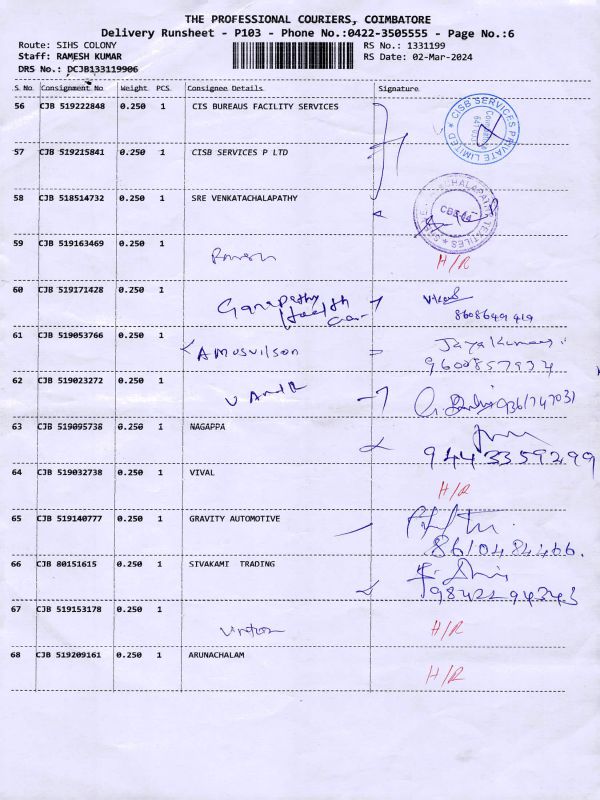 THE PROFESSIONAL COURIERS, COIMBATORE
Delivery Runsheet - P103 - Phone No.:0422-3505555 - Page No.:6
Route: SIHS COLONY
RS No.: 1331199
Staff: RAMESH KUMAR
RS Date: 02-Mar-2024
DRS No.: DCJB133119906
S No Consignment No Weight PCS Consignee Details Signature
56 CJB 519222848 0.250 1 CIS BUREAUS FACILITY SERVICES
CISB SERVICES PRIVATE LIMITED
57 CJB 519215841 0.250 1 CISB SERVICES P LTD
58 CJB 518514732 0.250 1 SRE VENKATACHALAPATHY
59 CJB 519163469 0.250 1
H/R
60 CJB 519171428 0.250 1 Ganapathy
Health
Care
8608649419
61 CJB 519053766 0.250 1 Jayakumar
9600857934
62 CJB 519023272 0.250 1
63 CJB 519095738 0.250 1 NAGAPPA
9443359299
64 CJB 519032738 0.250 1 VIVAL
H/R
65 CJB 519140777 0.250 1 GRAVITY AUTOMOTIVE
8610484466.
66 CJB 80151615 0.250 1 SIVAKAMI TRADING
9842294343
67 CJB 519153178 0.250 1
H/R
68 CJB 519209161 0.250 1 ARUNACHALAM
H/R